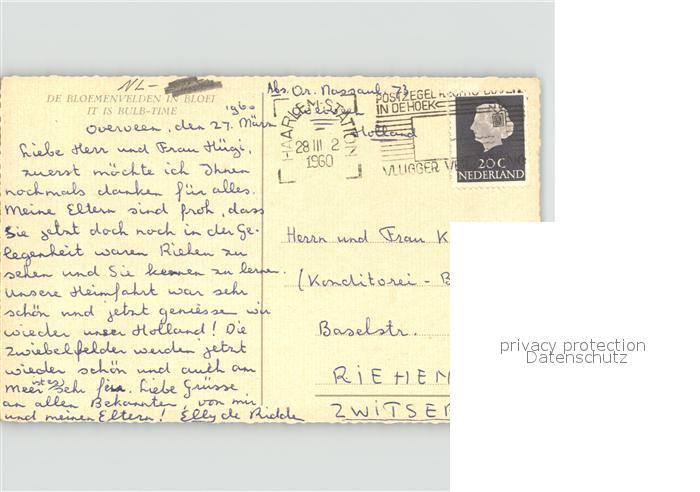 NL-
DE BLOEMENVELDEN IN BLOEI
IT IS BULB-TIME
1960
Overveen, den 27. März
Liebe Herr und Frau Hügi,
zuerst möchte ich Ihnen
nochmals danken für alles.
Meine Eltern sind froh, dass
Sie jetzt doch noch in der Ge-
legenheit waren Riehen zu
sehen und Sie kennen zu lernen.
Unsere Heimfahrt war sehr
schön und jetzt geniessen wir
wieder unser Holland! Die
Zwiebelfelder werden jetzt
wieder schön und auch am
Meer ist es sehr fein. Liebe Grüsse
an allen Bekannten, von mir
und meinen Eltern! Elly de Ridde
Abs. Or. Nassaul. 73
Overveen
Holland
HAARLEM-STATION
28 III 2
1960
POSTZEGEL RECHTS BOVEN
IN DE HOEK
VLUGGER VER
20 C
NEDERLAND
Herrn und Frau K
(Konditorei - B
Baselstr.
RIEHEN
ZWITSER
privacy protection
Datenschutz